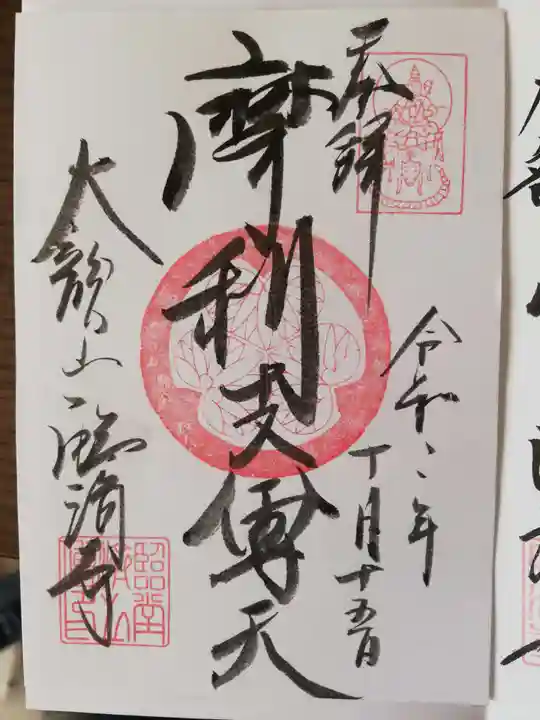 奉拝
令和二年
十月十五日
摩利支尊天
大龍山臨済寺